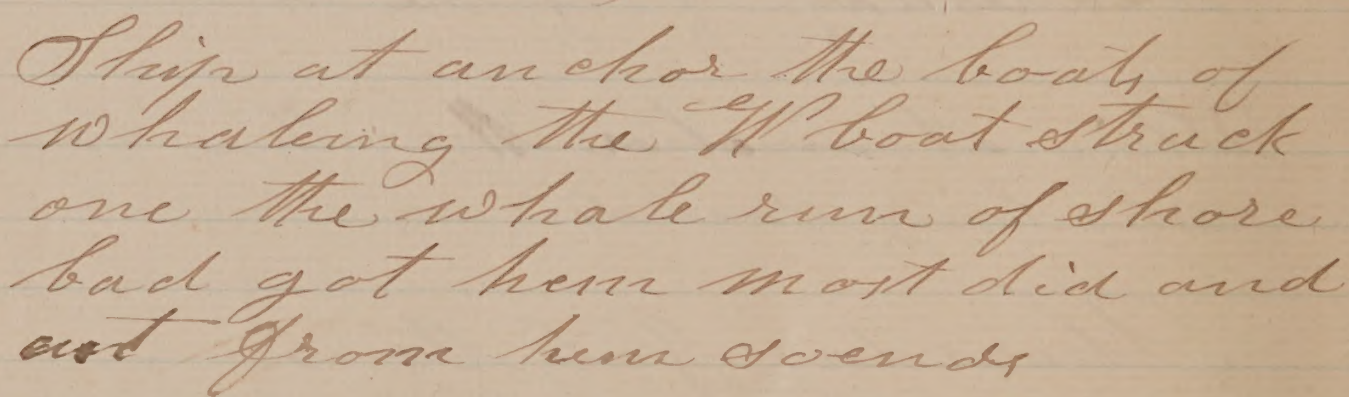 Ship at anchor the boats of
whaleing the W boat struck
one the whale run of shore
bad got hem most did and
cut from hem soends